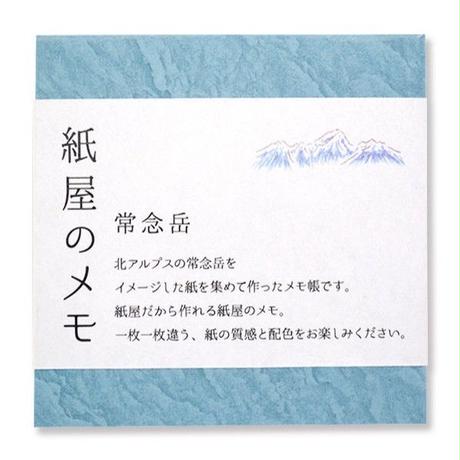 紙屋のメモ
常念岳
北アルプスの常念岳を
イメージした紙を集めて作ったメモ帳です。
紙屋だから作れる紙屋のメモ。
一枚一枚違う、紙の質感と配色をお楽しみください。